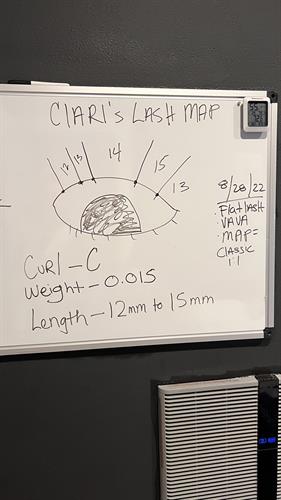 CIARI's LASH MAP
12 13 14 15 13
8/28/22
. Flat LASH
VAVA
. MAP=
CLASSIC
1:1
CURL - C
Weight - 0.015
Length - 12mm to 15mm